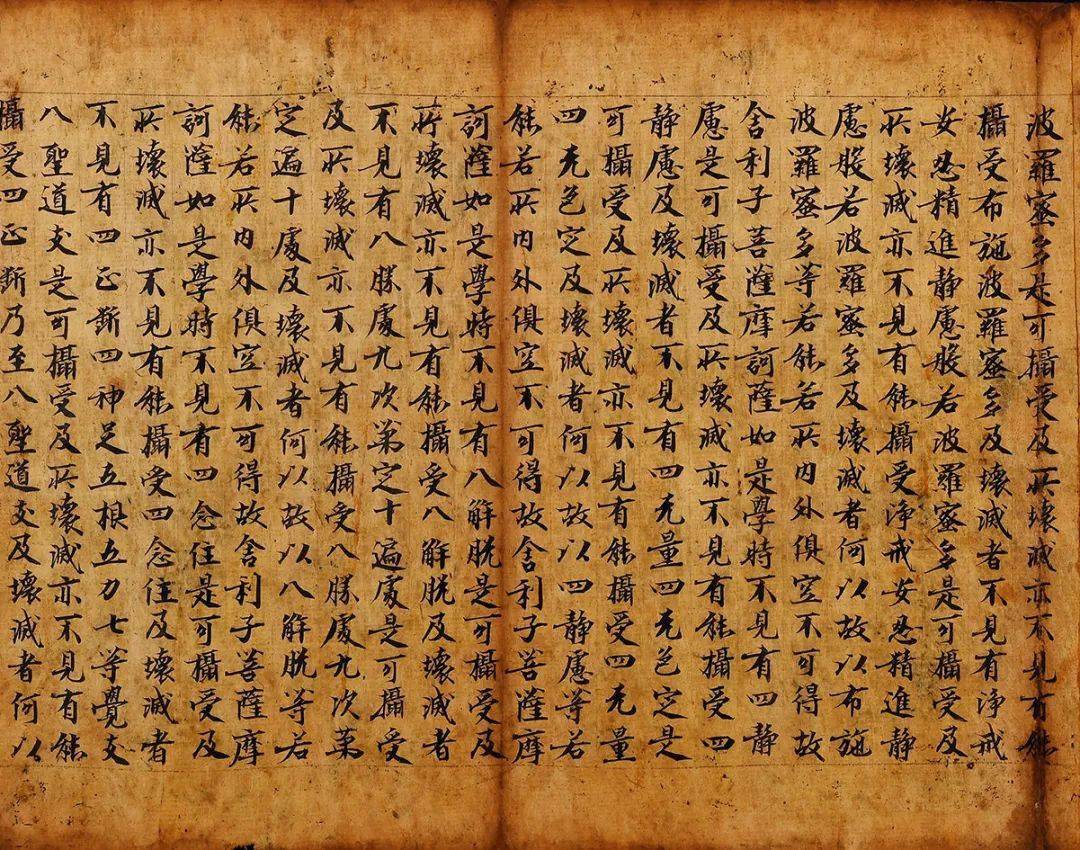 波羅蜜多是可攝受及所壞滅亦不見有能
攝受布施波羅蜜多及壞滅者不見有淨戒
安忍精進靜慮般若波羅蜜多是可攝受及
所壞滅亦不見有能攝受淨戒安忍精進靜
慮般若波羅蜜多及壞滅者何以故以布施
波羅蜜多等若能若所內外俱空不可得故
舍利子菩薩摩訶薩如是學時不見有四靜
慮是可攝受及所壞滅亦不見有能攝受四
靜慮及壞滅者不見有四无量四无色定是
可攝受及所壞滅亦不見有能攝受四无量
四无色定及壞滅者何以故以四靜慮等若
能若所內外俱空不可得故舍利子菩薩摩
訶薩如是學時不見有八解脫是可攝受及
所壞滅亦不見有能攝受八解脫及壞滅者
不見有八勝處九次第定十遍處是可攝受
及所壞滅亦不見有能攝受八勝處九次第
定遍十處及壞滅者何以故以八解脫等若
能若所內外俱空不可得故舍利子菩薩摩
訶薩如是學時不見有四念住是可攝受及
所壞滅亦不見有能攝受四念住及壞滅者
不見有四正斷四神足五根五力七等覺支
八聖道支是可攝受及所壞滅亦不見有能
攝受四正斷乃至八聖道支及壞滅者何以